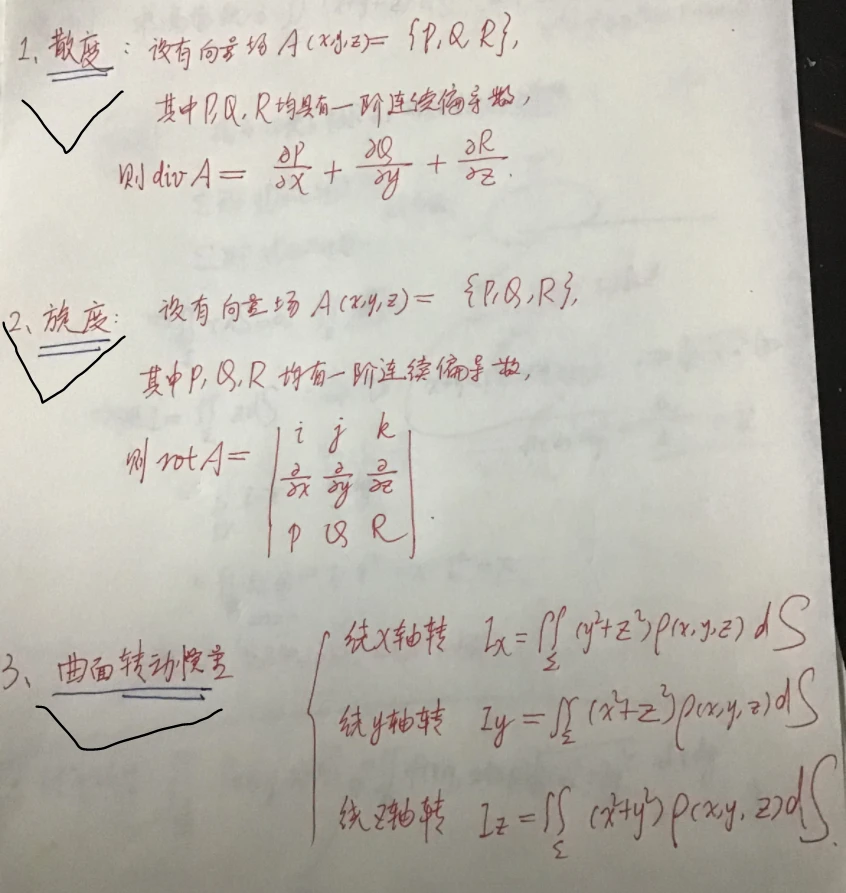 1、散度：设有向量场 A(x,y,z)= {P,Q,R},
其中P,Q,R均具有一阶连续偏导数,
则divA= ∂P/∂x + ∂Q/∂y + ∂R/∂z.
2、旋度: 设有向量场 A(x,y,z)= {P,Q,R},
其中P,Q,R 均有一阶连续偏导数,
则 rotA= | i j k |
| ∂/∂x ∂/∂y ∂/∂z |
| P Q R |.
3、曲面转动惯量
绕x轴转 Ix=∬Σ (y²+z²)ρ(x,y,z)dS
绕y轴转 Iy=∬Σ (x²+z²)ρ(x,y,z)dS
绕z轴转 Iz=∬Σ (x²+y²)ρ(x,y,z)dS.